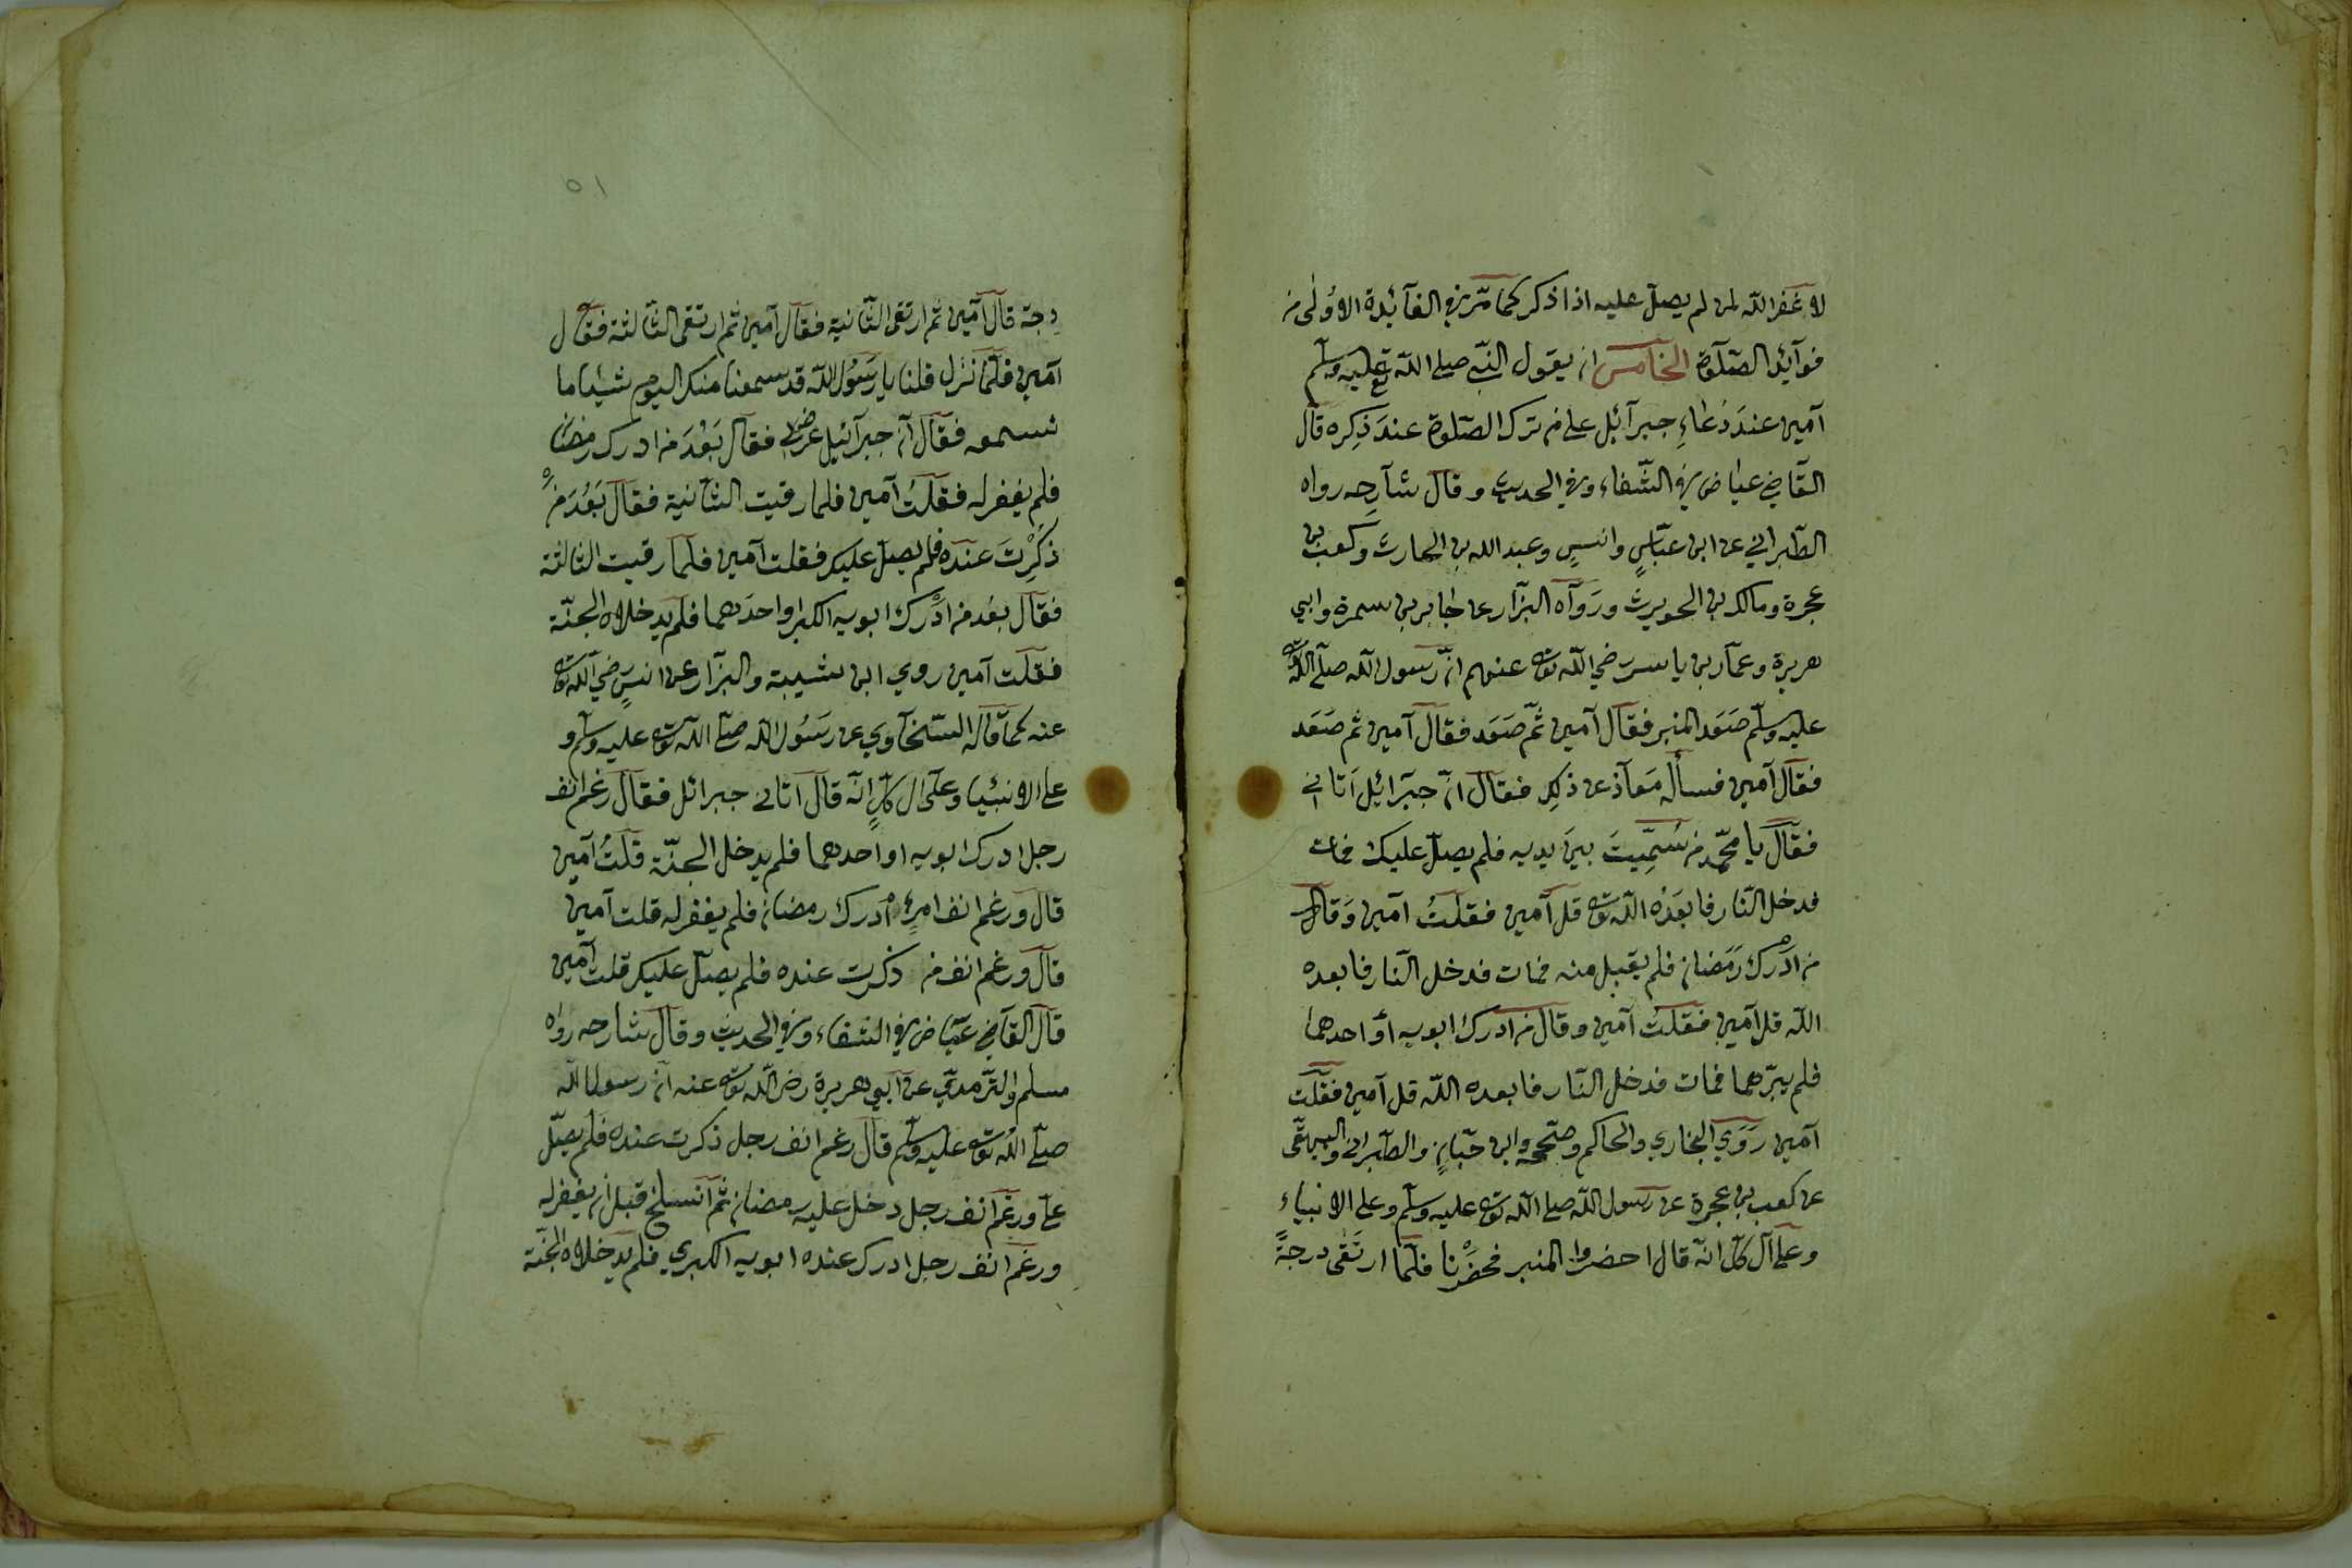 لا غفر الله لمن لم يصل عليه اذا ذكر كما مر في الفآئدة الاولى من
فوآئد الصّلوة الخامس ان يقول النّبي صلى الله تع عليه وسلم
آمين عندَ دُعاءِ جبرآئل على من ترك الصّلوة عندَ ذِكِره قال
القاضي عياض في الشّفاء وفي الحديث وقال شآرِحه رواه
الطّبراني عن ابن عبّاسٍ وانسٍ وعبد الله بن الحارث وكعب بن
عجرة ومالك بن الحويرث ورَوَاه البزّار عن جابر بن سمرة وابي
هريرة وعمّار بن ياسر رضي الله تعه عنهم انّ رسول الله صلّى الله تعه
عليه وسلّم صَعَد المنبر فقال آمين ثمّ صَعَد فقال آمين ثم صَعَد
فقال آمين فسأله مَعآذ عن ذلك فقال انّ جبَرائيل اَتاني
فقال يا محمّد من سُمّيتَ بينَ يديه فلم يصلّ عليك فمات
فدخل النّار فابعَدَه الله تعه قل آمين فقلتُ آمين وَقال
من ادَرك رَمَضان فلم يقبل منه فمات فدخل النّار فابعده
الله قل آمين فقلت آمين وقال من ادرك ابويه أو احدهما
فلم يبرّهما فمات فدخل النّار فابعده الله قل آمين فقلت
آمين رَوَي البخاري والحاكم وصحّحه وابن حبّانٍ والطّبراني والبيهقي
عن كعب بن عجرة عن رسول الله صلى الله تعه عليه وسلّم وعلى الانبياء
وعلى آل كلّ انّه قال احضروا المنبر فحضَرْنا فلمّا ارتقى درجةً
٥١
درجة قال آمين ثم ارتقى الثّانية فقال آمين ثم ارتقى الثالثة فقال
آمين فلمّا نزل قلنا يا رَسُول الله قد سمعنا منك اليوم شيئا ما
نسمعه فقال انّ جبرآئيل عرض لي فقال بَعُدَ من ادرك رمضان
فلم يغفر له فقلتُ آمين فلما رقيت الثّانية فقال بَعُدَ من
ذكِرْتَ عنده فلم يصلّ عليك فقلت آمين فلما رقيت الثالثة
فقال بعُد من ادْرك ابويه الكبر او احدهما فلم يدخلاه الجنّة
فقلت آمين روي ابن شيبة والبزّار عن انسٍ رضي الله تعه
عنه كما قاله السّخآوي عن رَسُول الله صلّى الله تعه عليه وسلّم و
على الانبيا وعلى ال كلٍّ انّه قال اتاني جبرائل فقال رغم انف
رجل ادرك ابويه او احدهما فلم يدخل الجنّة قلتُ آمين
قال ورغم انف امرئٍ ادرك رمضان فلم يغفر له قلت آمين
قال ورغم انف من ذكرت عنده فلم يصلّ عليك قلت آمين
قال القاضي عيّاض في الشفاء وفي الحديث وقال شارحه رواه
مسلم والتّرمذي عن ابي هريرة رضي الله تعه عنه انّ رسول الله
صلّى الله تعه عليه وسلّم قال رغم انف رجل ذكرت عنده فلم يصلّ
علَيّ ورغم انف رجل دخل عليه رمضان ثمّ انسلخ قبل ان يغفر له
ورغم انف رجل ادرك عنده ابويه الكبري فلم يدخلاه الجنّة